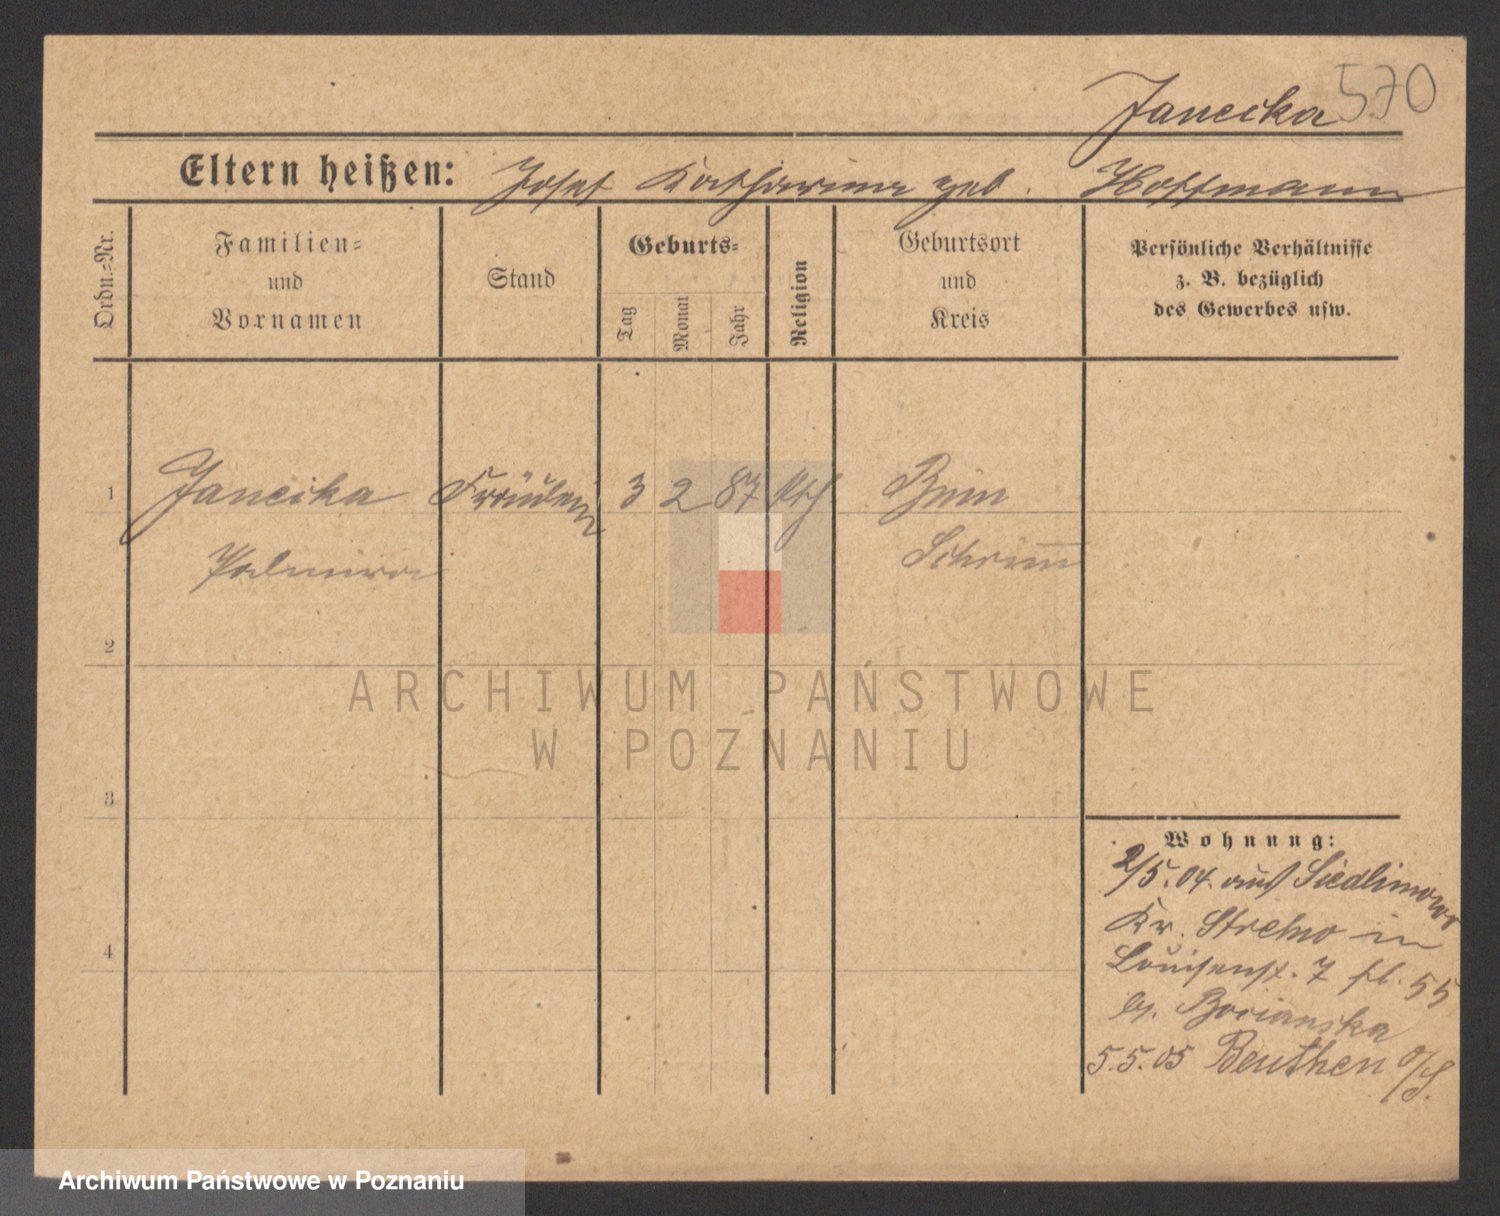 Janecika 570
Eltern heißen: Josef Katharina geb. Hoffmann
Ordn.=Nr.
Familien=
und
Vornamen
Stand
Geburts=
Tag
Monat
Jahr
Religion
Geburtsort
und
Kreis
Persönliche Verhältnisse
z. B. bezüglich
des Gewerbes usw.
1 Janecika Fräulein 3 2 87 kth Bnin
Palmira Schrimm
2
ARCHIWUM PAŃSTWOWE
W POZNANIU
3
Wohnung:
2/5.04. aus Siedlimowo
Kr. Strelno in
Louisenst. 7 fl. 55
by. Bocianska
5.5.05 Beuthen O/S.
4
Archiwum Państwowe w Poznaniu